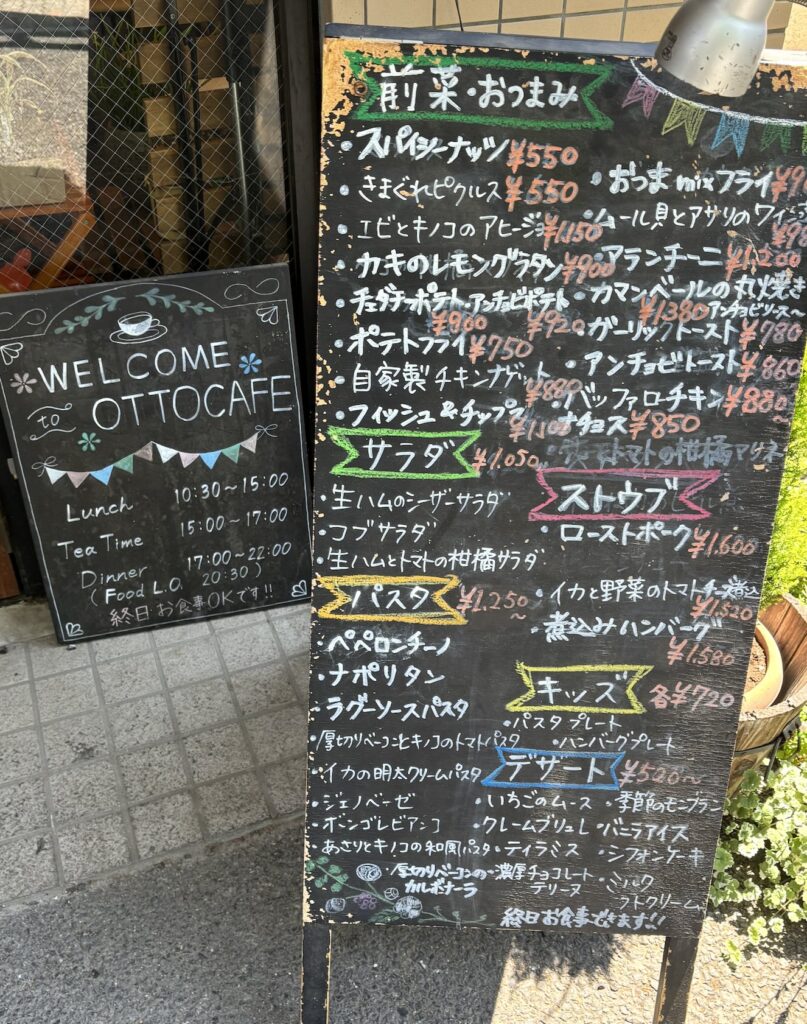 WELCOME
to OTTOCAFE
Lunch 10:30～15:00
Tea Time 15:00～17:00
Dinner 17:00～22:00
(Food L.O. 20:30)
終日お食事OKです!!
前菜・おつまみ
・スパイシーナッツ ¥550
・きまぐれピクルス ¥550
・エビとキノコのアヒージョ ¥1,150
・カキのレモングラタン ¥900
・チェダチーポテト ¥900 ・アンチョビポテト ¥920
・ポテトフライ ¥750
・自家製チキンナゲット ¥880
・フィッシュ&チップス
・おつまmixフライ
・ムール貝とアサリの
・アランチーニ ¥1,200
・カマンベールの丸焼き ¥1380
アンチョビソース～
・ガーリックトースト ¥780
・アンチョビトースト ¥860
・バッファローチキン ¥880～
・ナチョス ¥850
トマトの柑橘マリネ
サラダ ¥1,050～
・生ハムのシーザーサラダ
・コブサラダ
・生ハムとトマトの柑橘サラダ
ストウブ
・ローストポーク ¥1,600
・イカと野菜のトマトチーズ煮込 ¥1,520
・煮込みハンバーグ ¥1,580
パスタ ¥1,250～
・ペペロンチーノ
・ナポリタン
・ラグーソースパスタ
・厚切りベーコンとキノコのトマトパスタ
・イカの明太クリームパスタ
・ジェノベーゼ
・ボンゴレビアンコ
・あさりとキノコの和風パスタ
・厚切りベーコンの
カルボナーラ
キッズ 各¥720
・パスタプレート
・ハンバーグプレート
デザート ¥520～
・いちごのムース ・季節のモンブラン
・クレームブリュレ ・バニラアイス
・ティラミス ・シフォンケーキ
・濃厚チョコレート
テリーヌ
・ミルク
フトクリーム
終日お食事できます!!